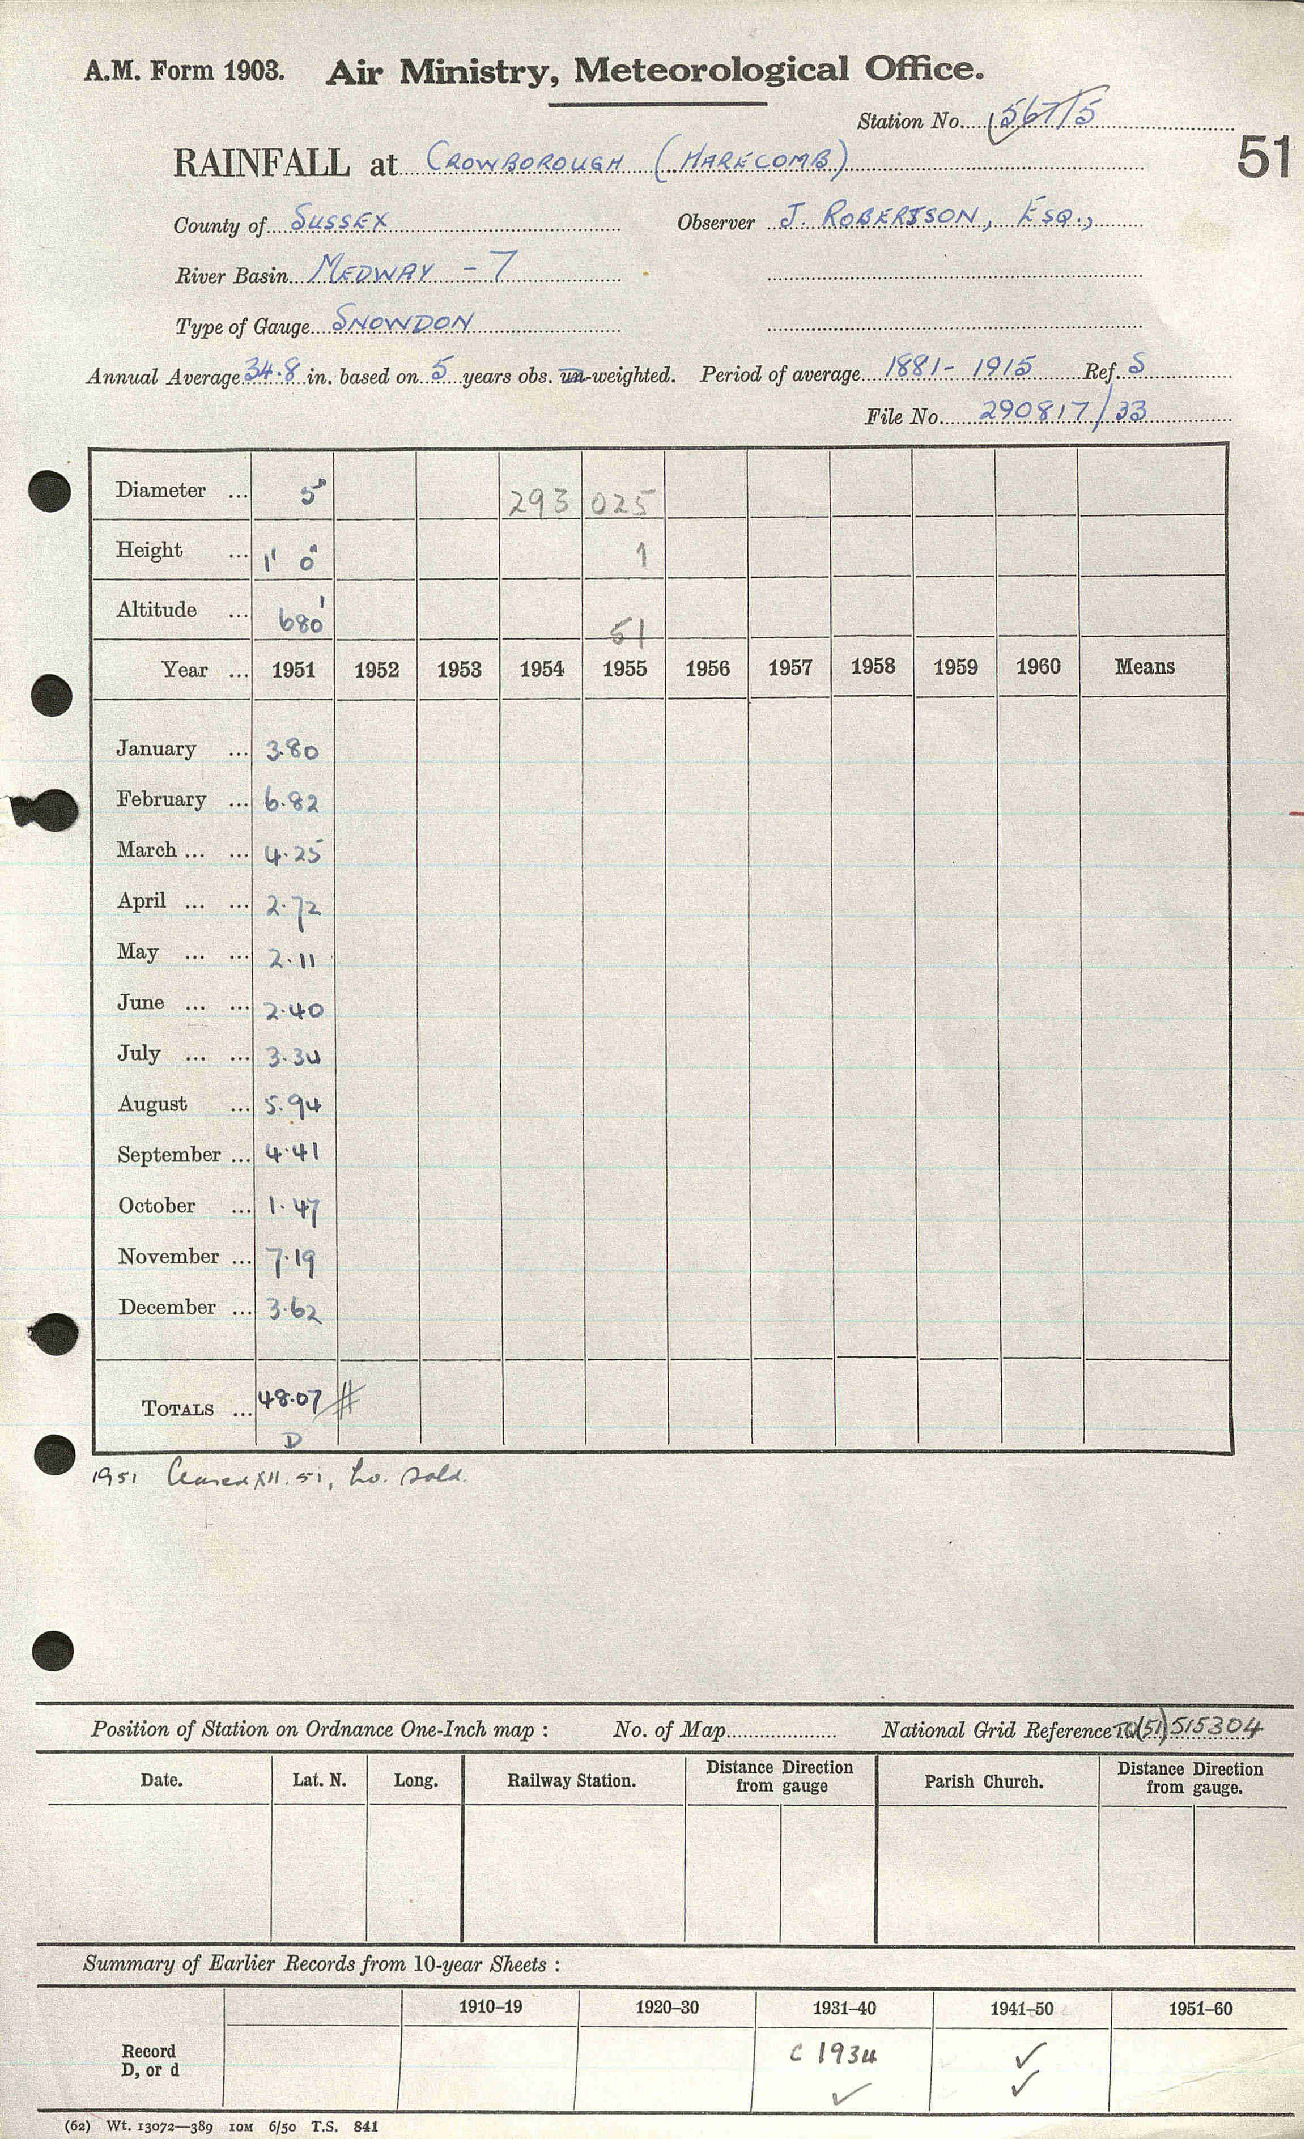 A.M. Form 1903. Air Ministry, Meteorological Office.
Station No. 567/5
51
RAINFALL at CROWBOROUGH (HARECOMB)
County of SUSSEX Observer J. ROBERTSON, ESQ.,
River Basin MEDWAY - 7
Type of Gauge SNOWDON
Annual Average 34.8 in. based on 5 years obs. un-weighted. Period of average 1881 - 1915 Ref. S
File No. 290817/33
Diameter ... 5" 293 025
Height ... 1' 0" 1
Altitude ... 680' 51
Year ... 1951 1952 1953 1954 1955 1956 1957 1958 1959 1960 Means
January ... 3.80
February ... 6.82
March ... ... 4.25
April ... ... 2.72
May ... ... 2.11
June ... ... 2.40
July ... ... 3.34
August ... 5.94
September ... 4.41
October ... 1.47
November ... 7.19
December ... 3.62
TOTALS ... 48.07 #
D
1951 Ceased XII. 51, ho. sold.
Position of Station on Ordnance One-Inch map : No. of Map National Grid Reference TQ(51)515304
Date. Lat. N. Long. Railway Station. Distance Direction from gauge Parish Church. Distance Direction from gauge.
Summary of Earlier Records from 10-year Sheets :
1910–19 1920–30 1931–40 1941–50 1951–60
Record D, or d C 1934 ✓
✓ ✓
(62) Wt. 13072—389 10M 6/50 T.S. 841